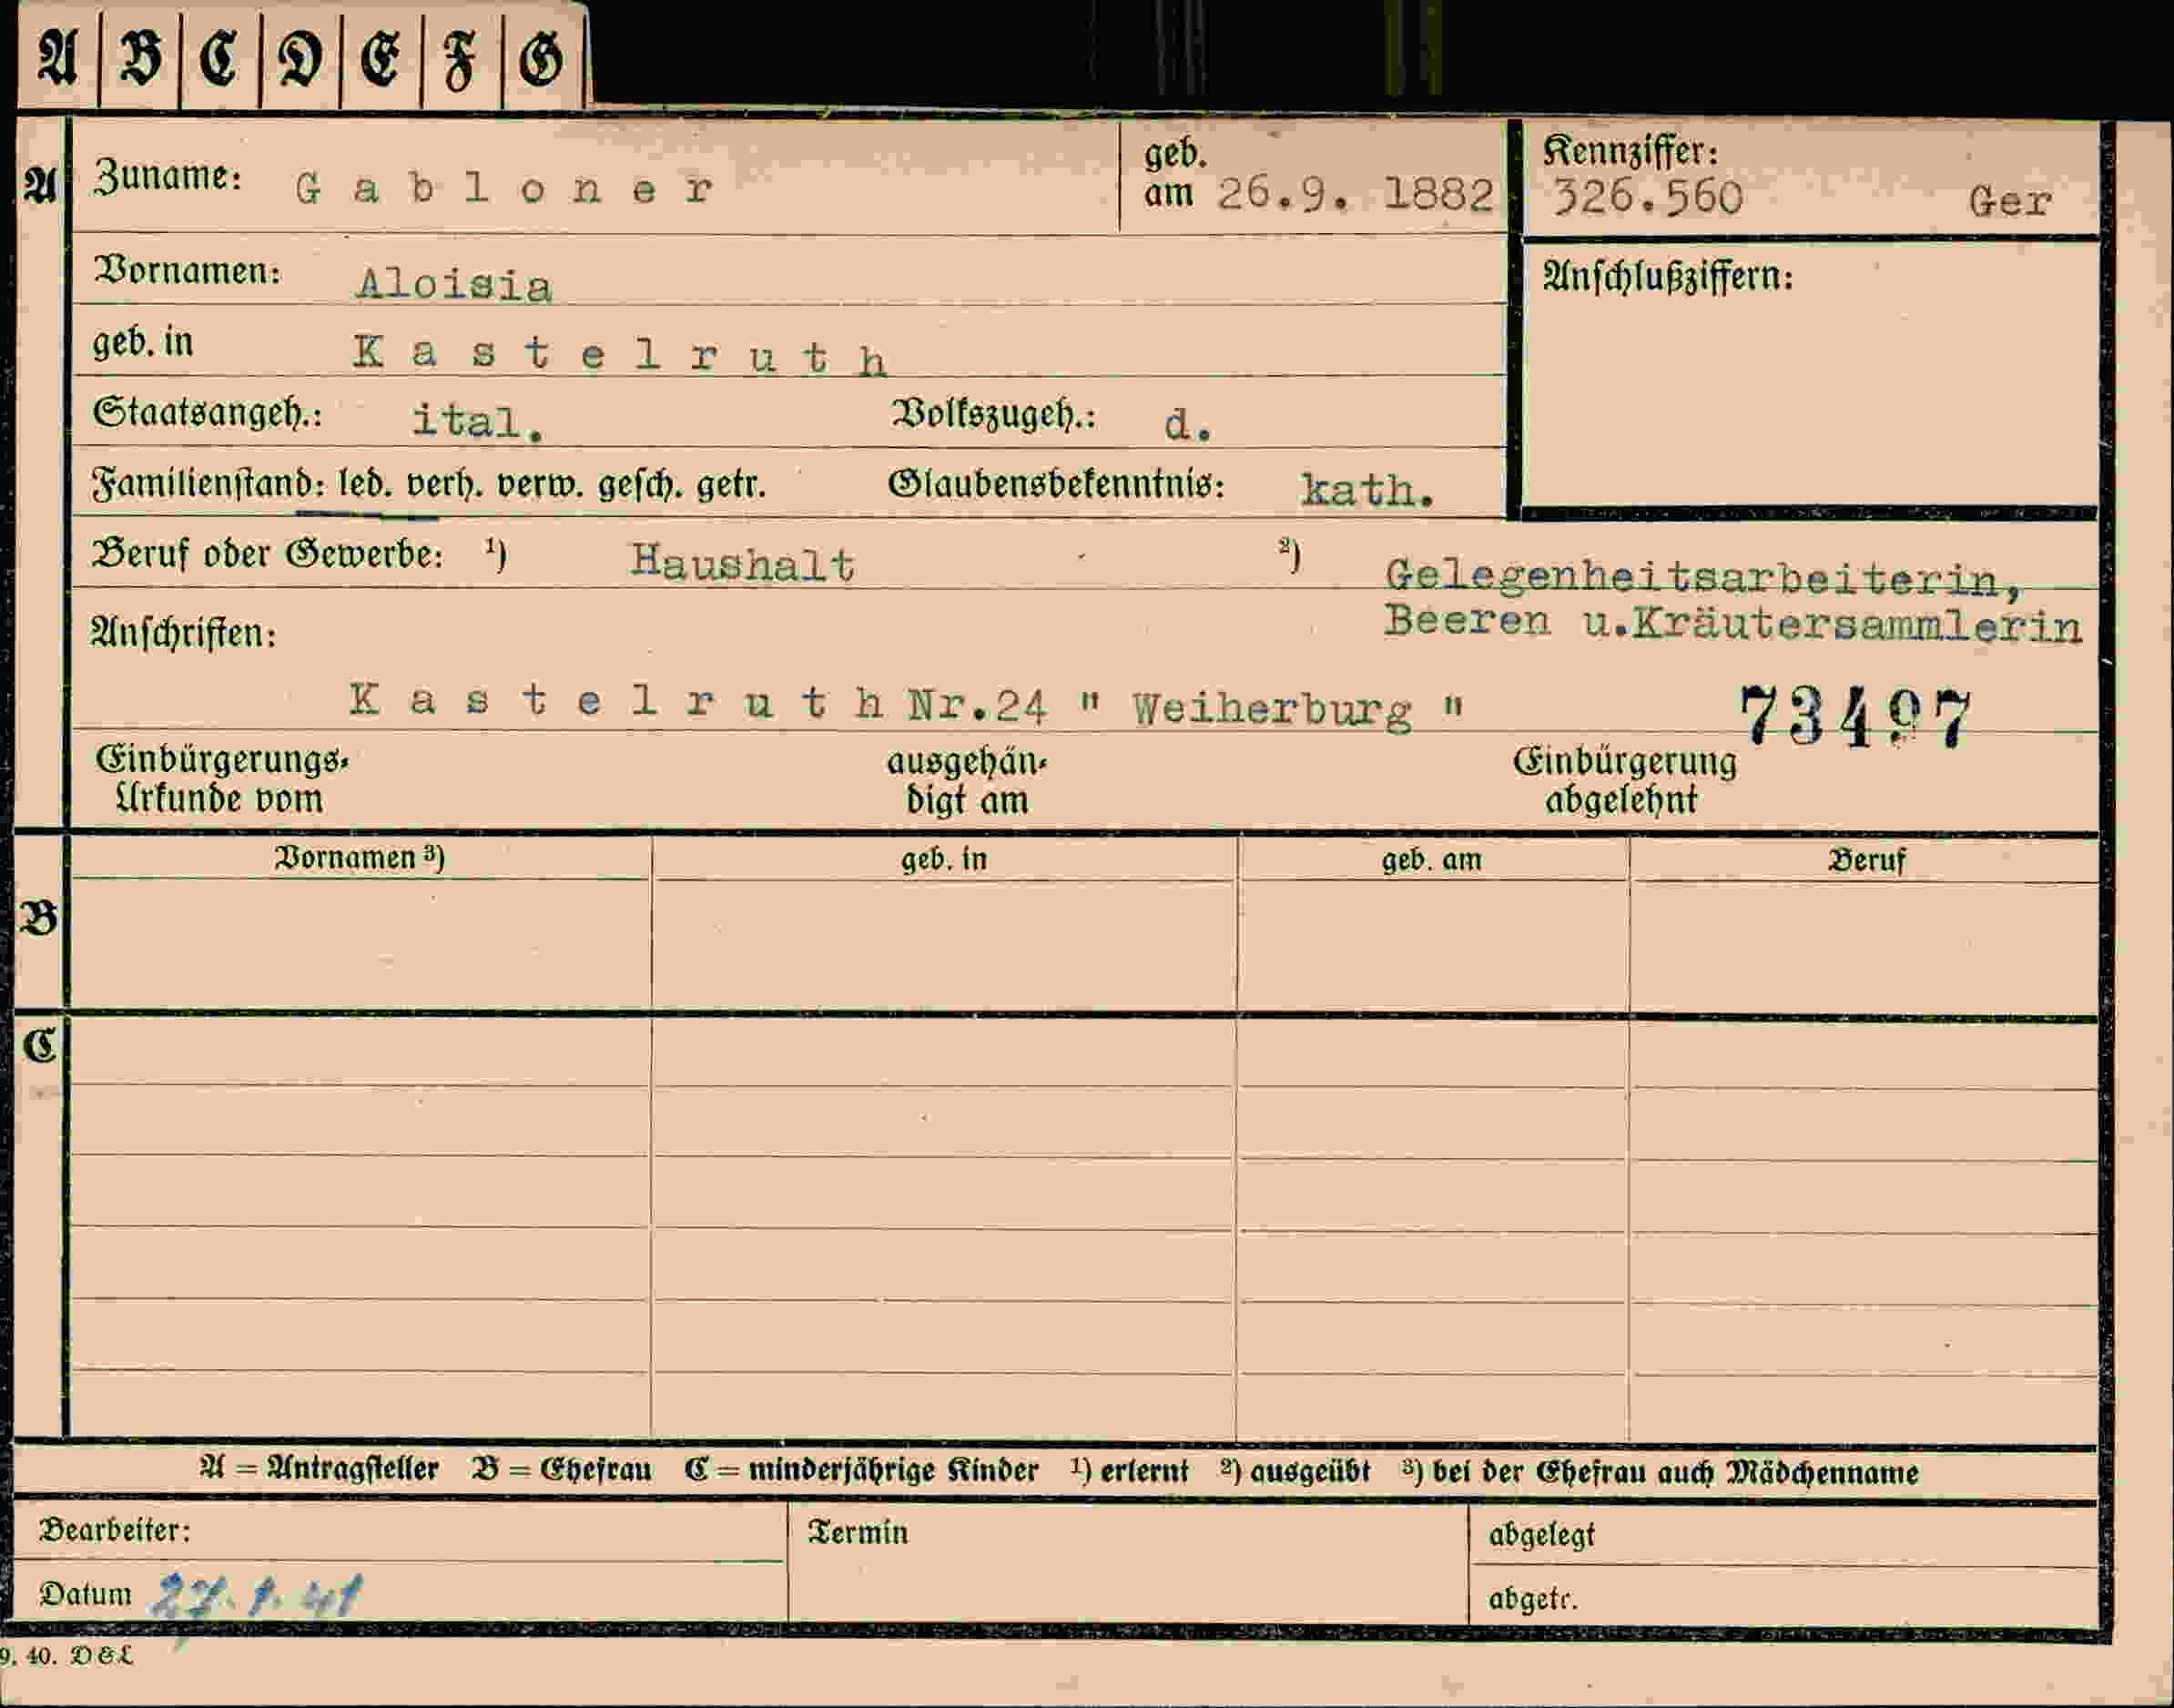 A B C D E F G
A Zuname: Gabloner geb. am 26.9. 1882 Kennziffer: 326.560 Ger
Vornamen: Aloisia Anschlußziffern:
geb. in Kastelruth
Staatsangeh.: ital. Volkszugeh.: d.
Familienstand: led. verh. verw. gesch. getr. Glaubensbekenntnis: kath.
Beruf oder Gewerbe: 1) Haushalt 2) Gelegenheitsarbeiterin,
Beeren u.Kräutersammlerin
Anschriften:
Kastelruth Nr.24 " Weiherburg " 73497
Einbürgerungs- ausgehän- Einbürgerung
Urkunde vom digt am abgelehnt
Vornamen 3) geb. in geb. am Beruf
B
C
A = Antragsteller B = Ehefrau C = minderjährige Kinder 1) erlernt 2) ausgeübt 3) bei der Ehefrau auch Mädchenname
Bearbeiter: Termin abgelegt
Datum 27.1.41 abgetr.
9. 40. D&L